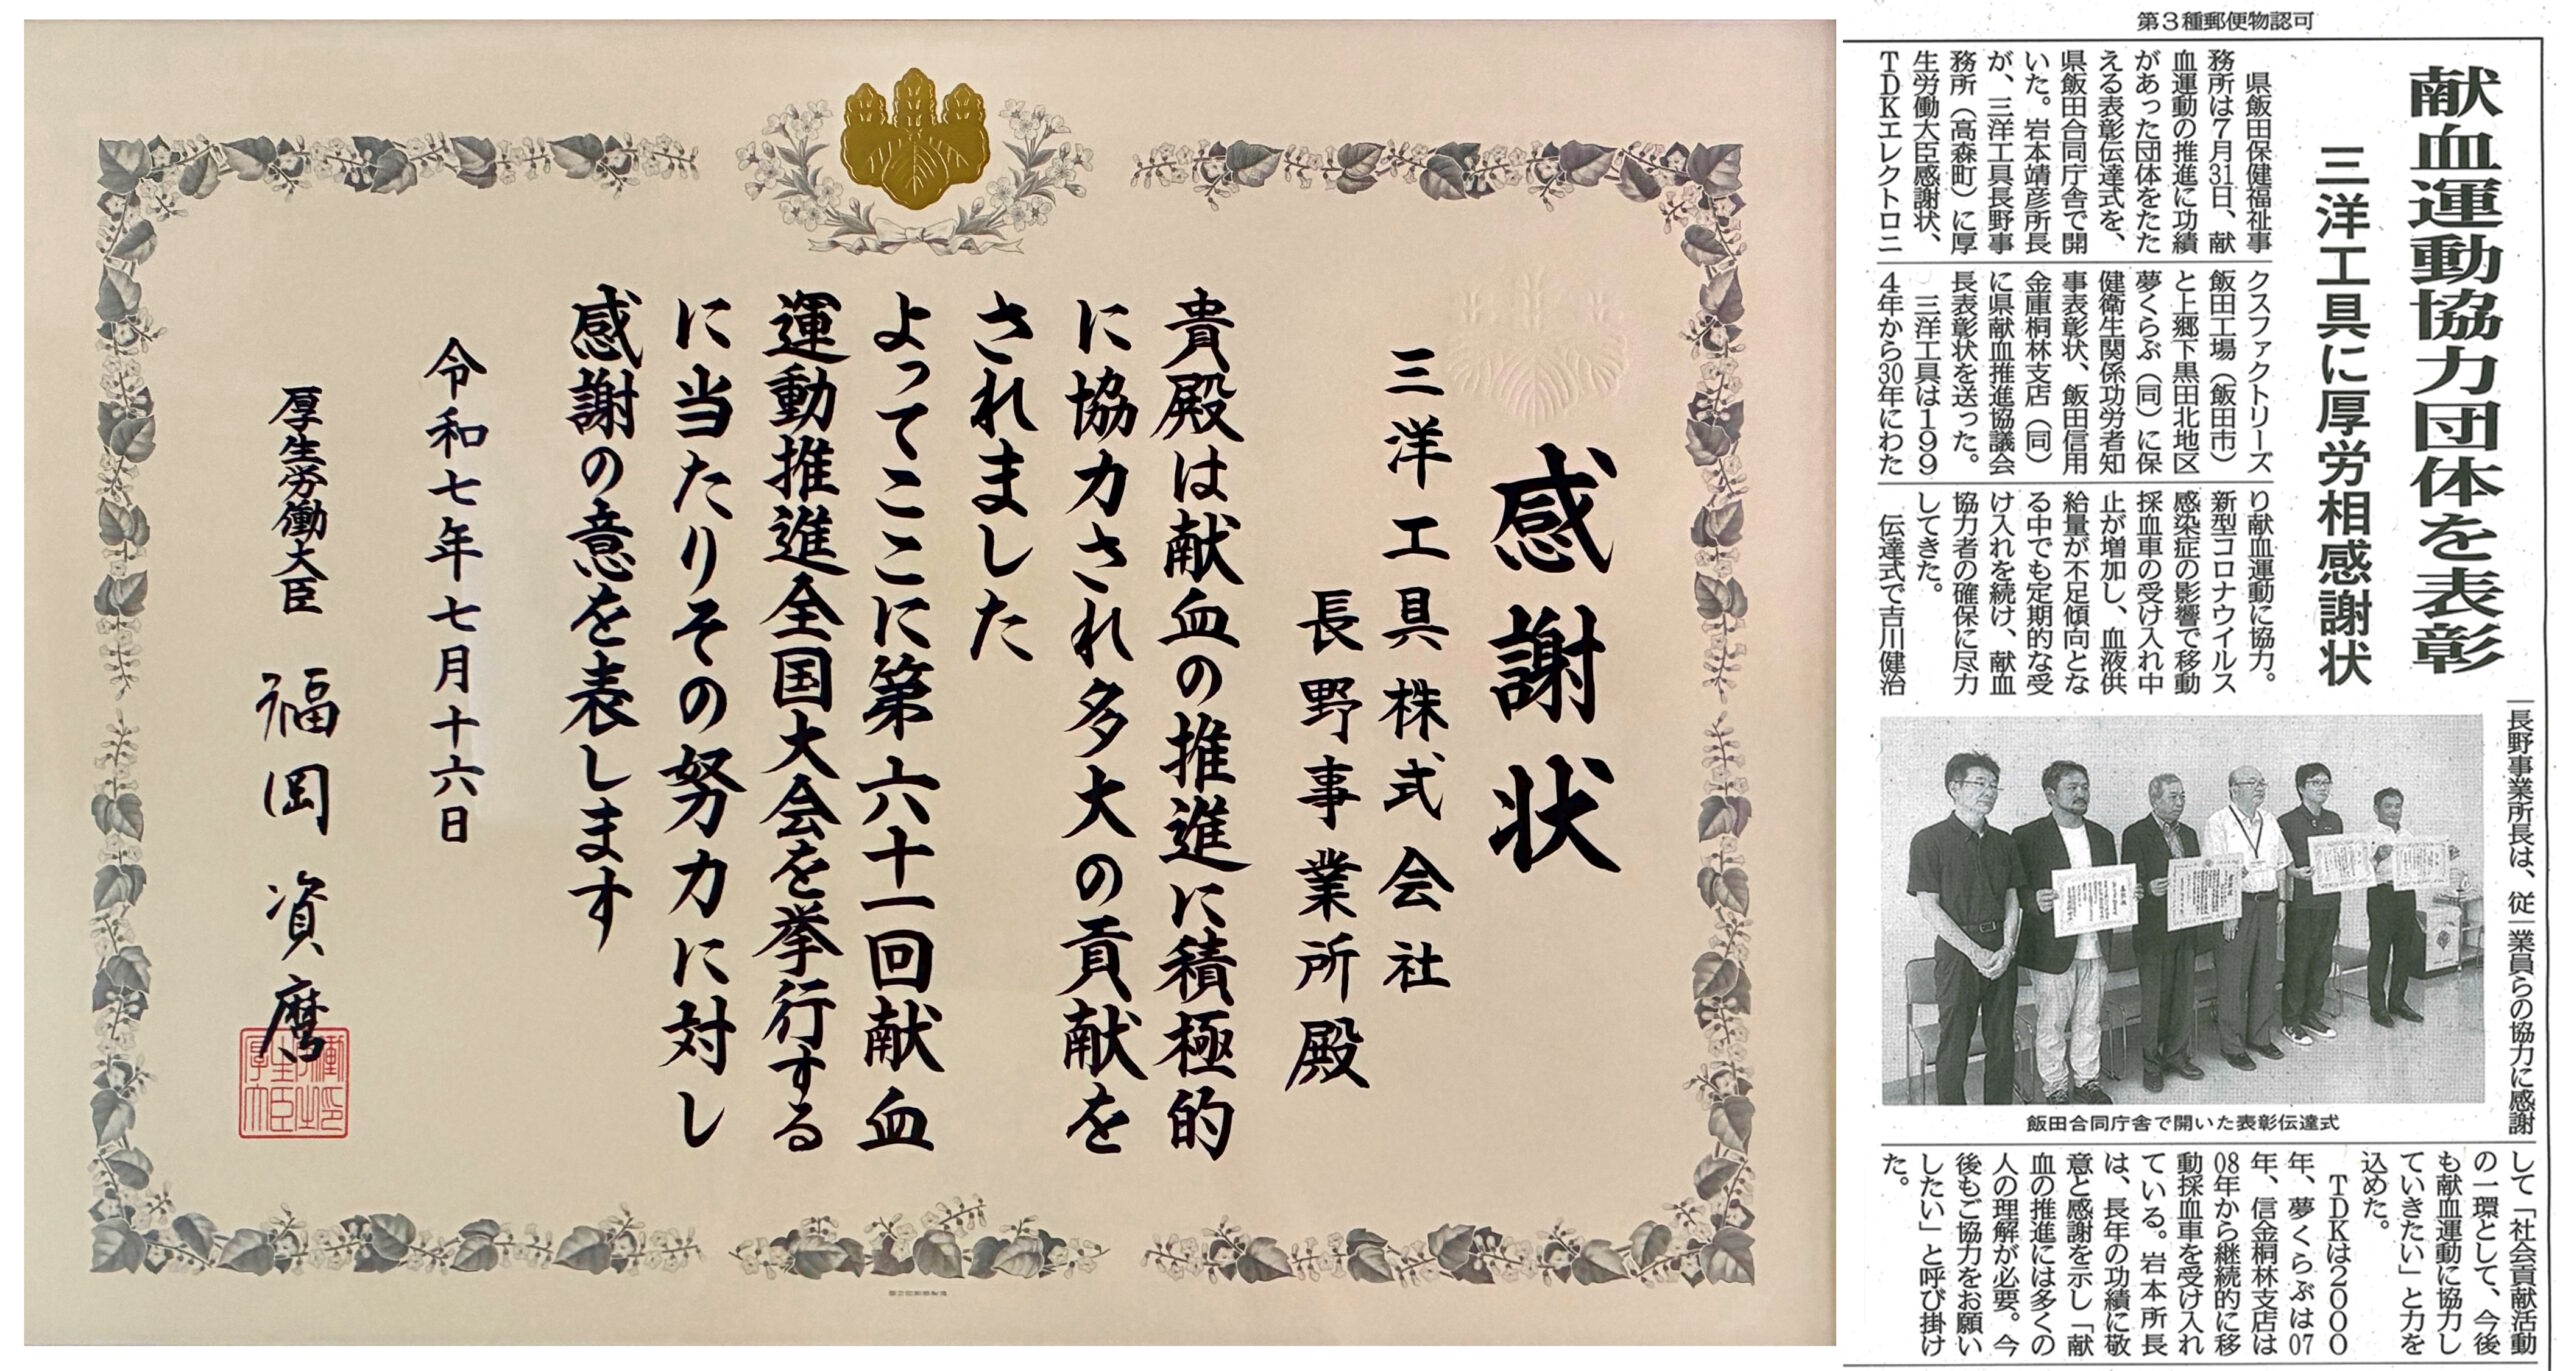 感謝状
三洋工具株式会社
長野事業所殿
貴殿は献血の推進に積極的
に協力され多大の貢献を
されました
よってここに第六十一回献血
運動推進全国大会を挙行する
に当たりその努力に対し
感謝の意を表します
令和七年七月十六日
厚生労働大臣 福岡資麿
第3種郵便物認可
献血運動協力団体を表彰
三洋工具に厚労相感謝状
県飯田保健福祉事
務所は7月31日、献
血運動の推進に功績
があった団体をたた
える表彰伝達式を、
県飯田合同庁舎で開
いた。岩本靖彦所長
が、三洋工具長野事
務所（高森町）に厚
生労働大臣感謝状、
TDKエレクトロニ
クスファクトリーズ
飯田工場（飯田市）
と上郷下黒田北地区
夢くらぶ（同）に保
健衛生関係功労者知
事表彰状、飯田信用
金庫桐林支店（同）
に県献血推進協議会
長表彰状を送った。
三洋工具は199
4年から30年にわた
り献血運動に協力。
新型コロナウイルス
感染症の影響で移動
採血車の受け入れ中
止が増加し、血液供
給量が不足傾向とな
る中でも定期的な受
け入れを続け、献血
協力者の確保に尽力
してきた。
伝達式で吉川健治
長野事業所長は、従
業員らの協力に感謝
して「社会貢献活動
の一環として、今後
も献血運動に協力し
ていきたい」と力を
込めた。
TDKは2000
年、夢くらぶは07
年、信金桐林支店は
08年から継続的に移
動採血車を受け入れ
ている。岩本所長
は、長年の功績に敬
意と感謝を示し「献
血の推進には多くの
人の理解が必要。今
後もご協力をお願い
したい」と呼び掛け
た。
飯田合同庁舎で開いた表彰伝達式